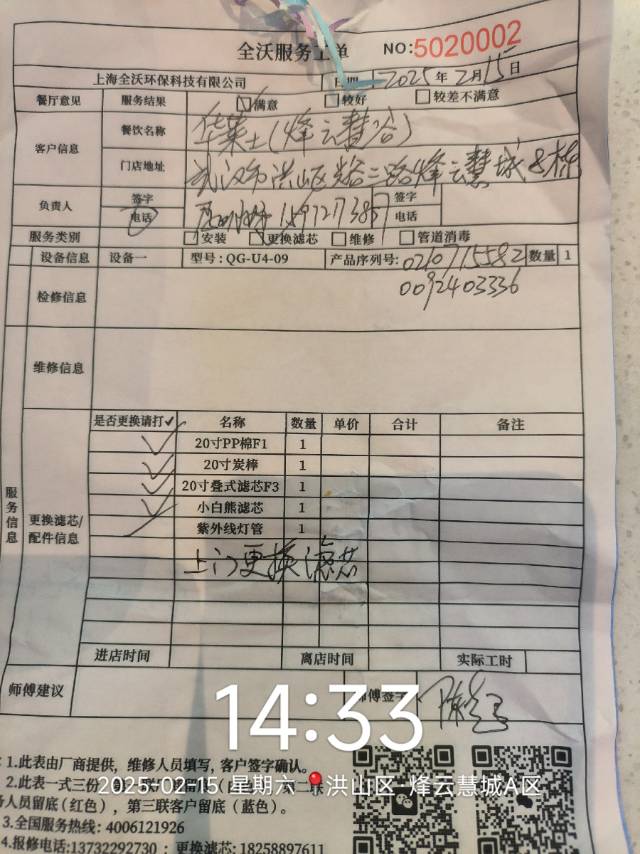 全沃服务工单 NO:5020002
上海全沃环保科技有限公司 日期 2025年2月15日
餐厅意见 服务结果 ☑满意 □较好 □较差不满意
客户信息 餐饮名称 华莱士(烽云慧谷)
门店地址 武汉市洪山区 三路烽云慧城8栋
负责人 签字 签字
电话 电话
服务类别 □安装 ☑更换滤芯 □维修 □管道消毒
设备信息 设备一 型号:QG-U4-09 产品序列号:0210715582 数量 1
0092403336
检修信息
维修信息
服务信息
更换滤芯/配件信息
是否更换请打✓ 名称 数量 单价 合计 备注
✓ 20寸PP棉F1 1
✓ 20寸炭棒 1
✓ 20寸叠式滤芯F3 1
✓ 小白熊滤芯 1
紫外线灯管 1
上门更换滤芯
进店时间 离店时间 实际工时
师傅建议 师傅签字
14:33
1.此表由厂商提供，维修人员填写，客户签字确认。
2.此表一式三份
2025-02-15 星期六 洪山区·烽云慧城A区
务人员留底(红色)，第三联客户留底(蓝色)。
3.全国服务热线: 4006121926
4.报修电话:13732292730；更换滤芯: 18258897611